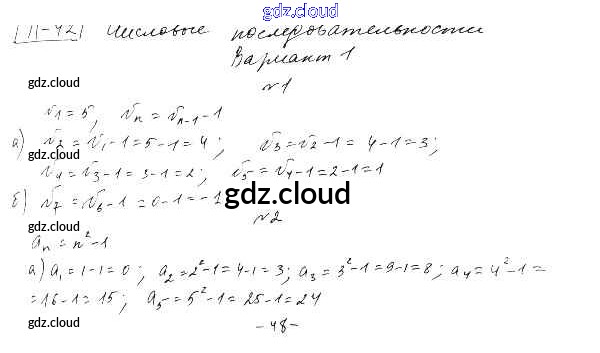 gdz.cloud
П-42 Числовые последовательности
Вариант 1
gdz.cloud
№1
v₁ = 5, vₙ = vₙ₋₁ - 1
а) v₂ = v₁ - 1 = 5 - 1 = 4; v₃ = v₂ - 1 = 4 - 1 = 3;
gdz.cloud
v₄ = v₃ - 1 = 3 - 1 = 2; v₅ = v₄ - 1 = 2 - 1 = 1
б) v₇ = v₆ - 1 = 0 - 1 = -1
gdz.cloud
№2
gdz.cloud
aₙ = n² - 1
а) a₁ = 1 - 1 = 0; a₂ = 2² - 1 = 4 - 1 = 3; a₃ = 3² - 1 = 9 - 1 = 8; a₄ = 4² - 1 =
= 16 - 1 = 15; a₅ = 5² - 1 = 25 - 1 = 24
gdz.cloud
- 48 -